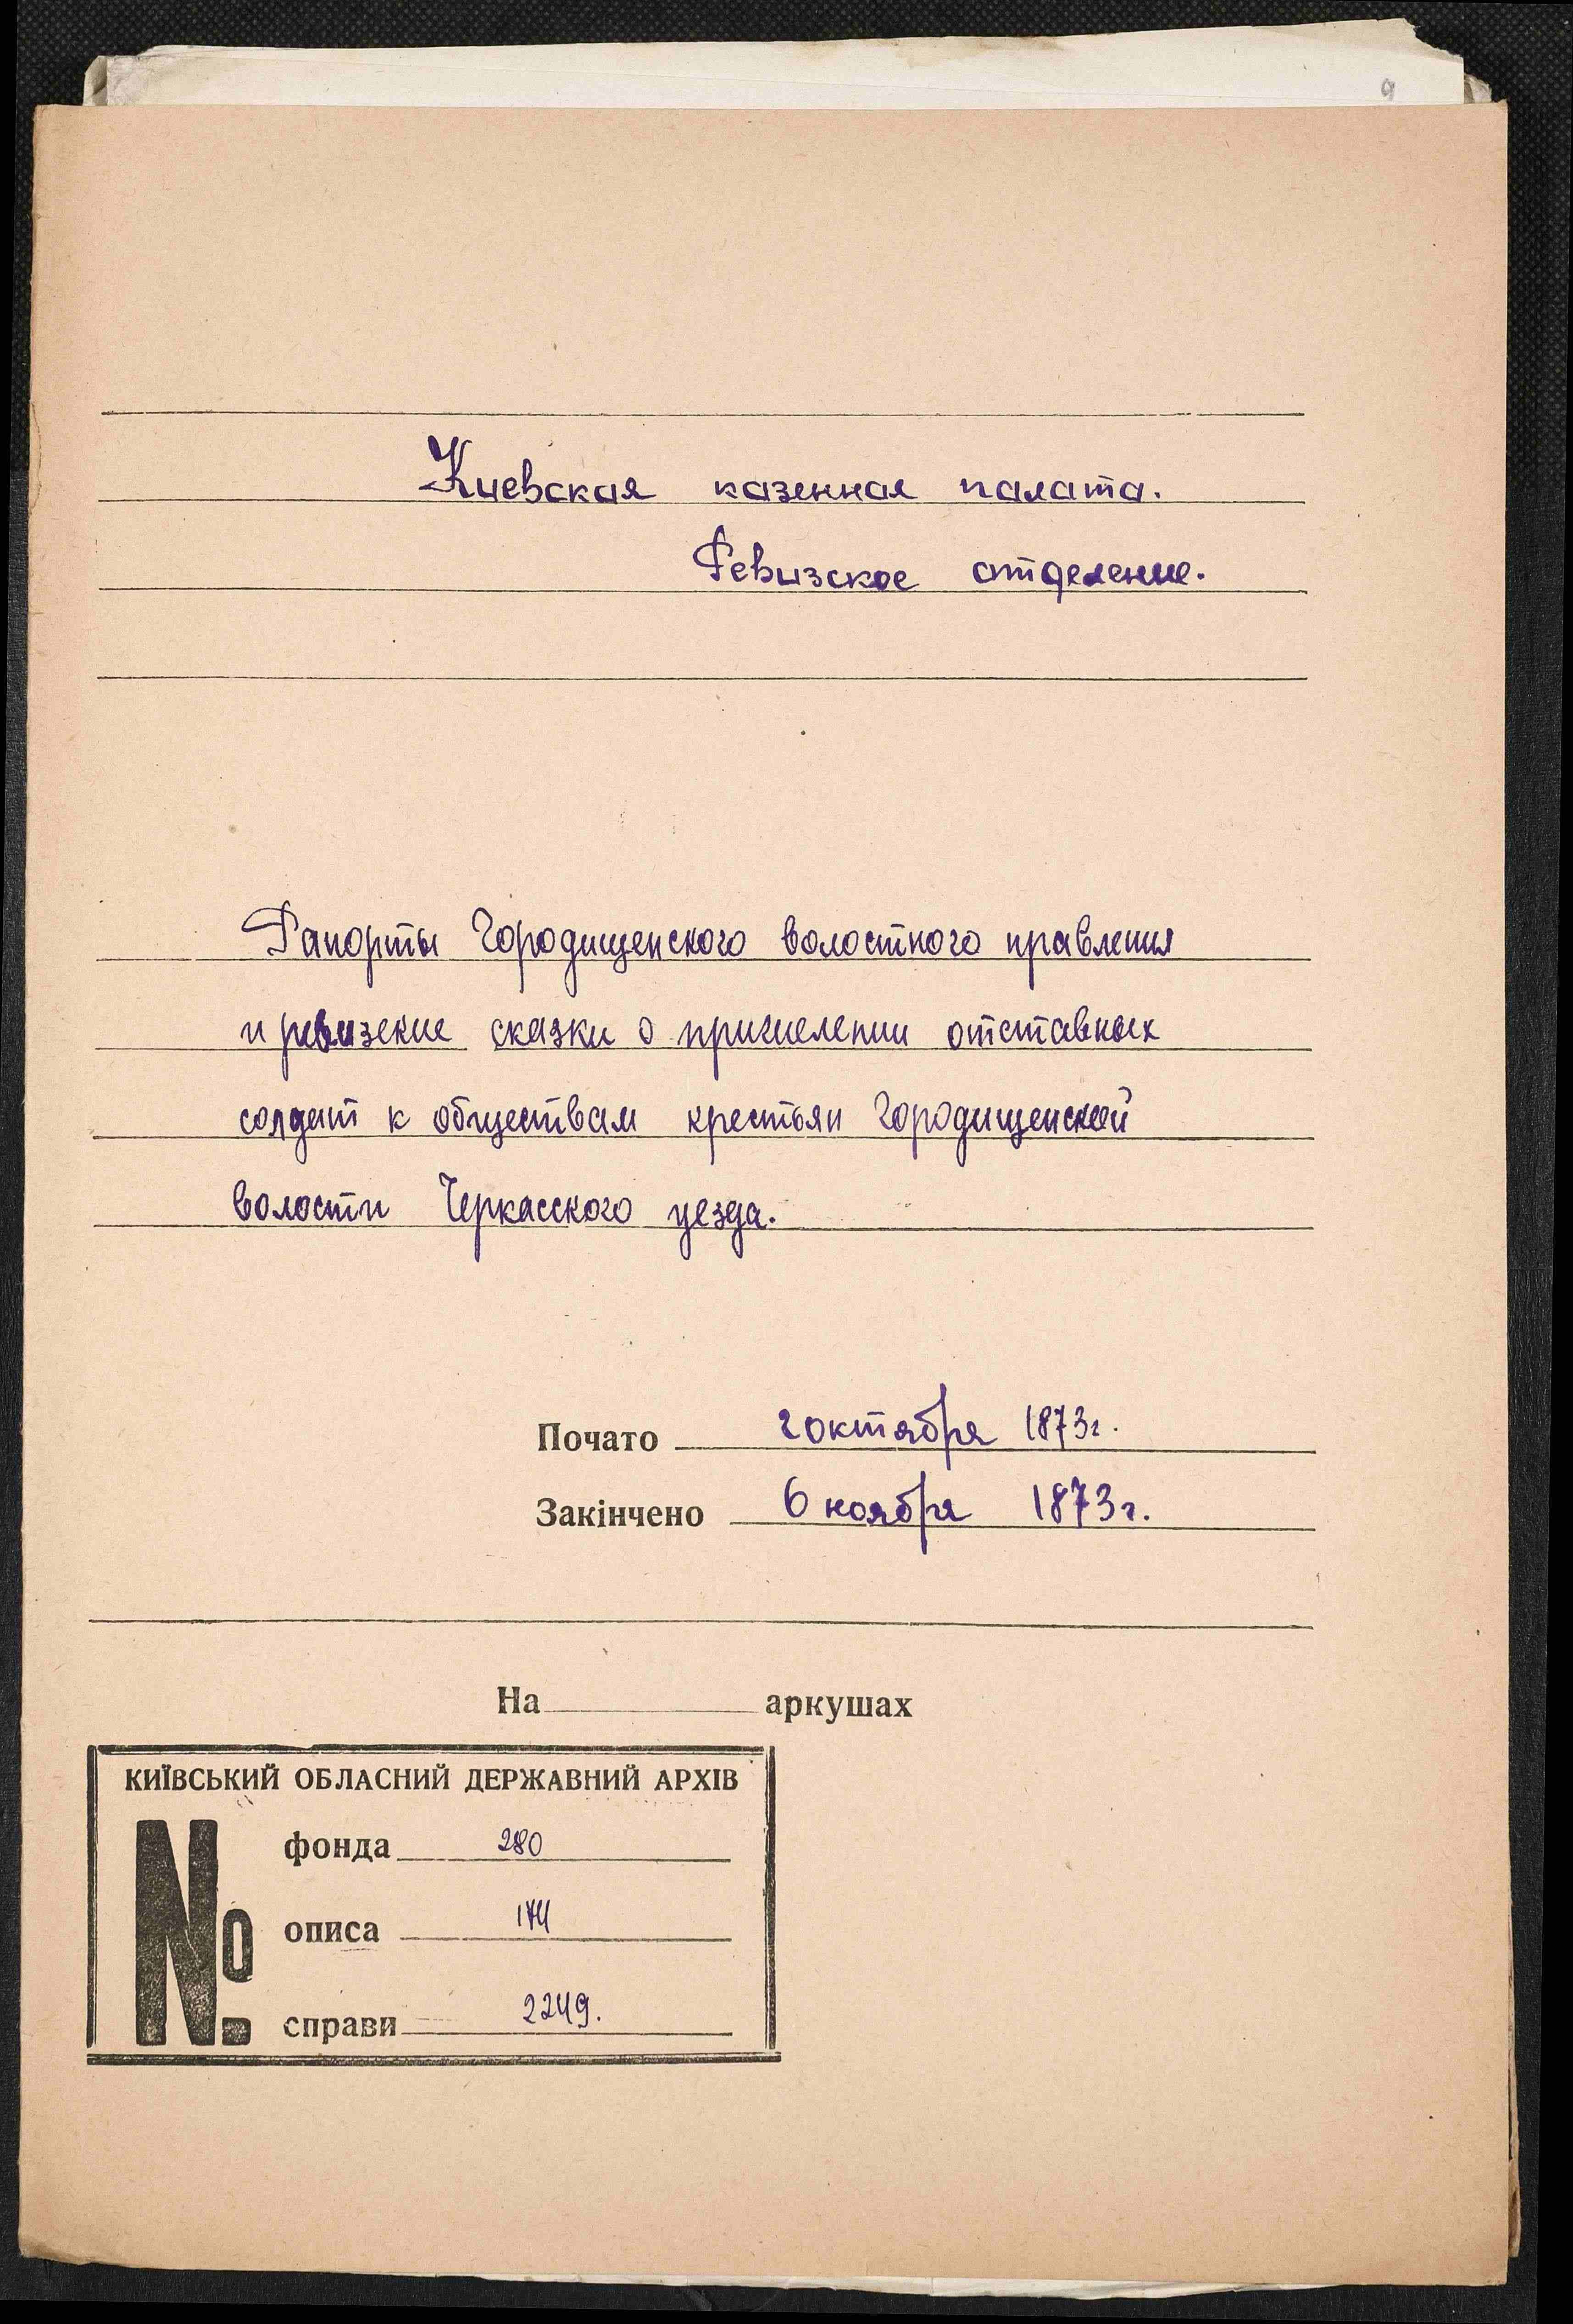 9
Киевская казенная палата.
Ревизское отделение.
Рапорты Городищенского волостного правления
и ревизские сказки о причислении отставных
солдат к обществам крестьян Городищенской
волости Черкасского уезда.
Почато 2 октября 1873г.
Закінчено 6 ноября 1873г.
На аркушах
КИЇВСЬКИЙ ОБЛАСНИЙ ДЕРЖАВНИЙ АРХІВ
№ фонда 280
описа 174
справи 2249.